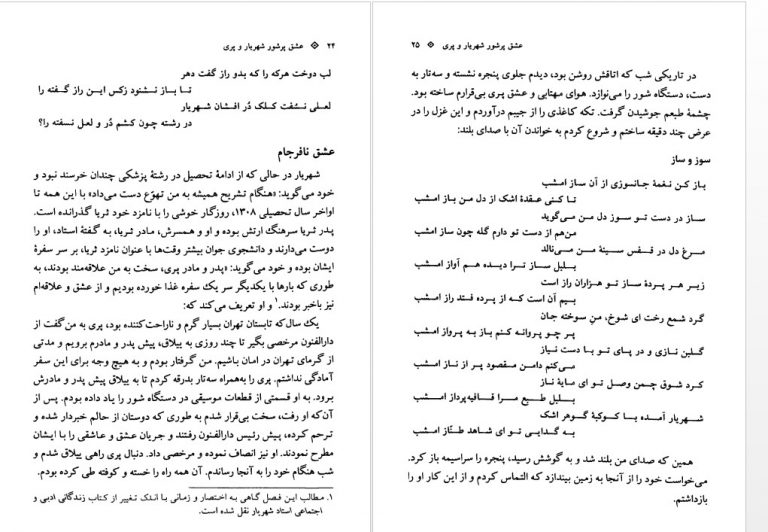 ۲۴ ※ عشق پرشور شهریار و پری
لب دوخت هرکه را که بدو راز گفت دهر
تا باز نشنود زکس این راز گفته را
لعلی نشفت کلک دُر افشان شهریار
در رشته چون کشم دُر و لعل نسفته را؟
عشق نافرجام
شهریار در حالی که از ادامهٔ تحصیل در رشتهٔ پزشکی چندان خرسند نبود و
خود می‌گوید: «هنگام تشریح همیشه به من تهوّع دست می‌داد» با این همه تا
اواخر سال تحصیلی ۱۳۰۸، روزگار خوشی را با نامزد خود ثریا گذرانده است.
پدر ثریا سرهنگ ارتش بوده و او و همسرش، مادر ثریا، به گفتهٔ استاد، او را
دوست می‌دارند و دانشجوی جوان بیشتر وقت‌ها با عنوان نامزد ثریا، بر سر سفرهٔ
ایشان بوده و خود می‌گوید: «پدر و مادر پری، سخت به من علاقه‌مند بودند، به
طوری که بارها با یکدیگر سر یک سفره غذا خورده بودیم و از عشق و علاقه‌ام
نیز باخبر بودند.۱ و او تعریف می‌کند که:
یک سال که تابستان تهران بسیار گرم و ناراحت‌کننده بود، پری به من گفت از
دارالفنون مرخصی بگیر تا چند روزی به ییلاق، پیش پدر و مادرم برویم و مدتی
از گرمای تهران در امان باشیم. من گرفتار بودم و به هیچ وجه برای این سفر
آمادگی نداشتم. پری را به‌همراه سه‌تار بدرقه کردم تا به ییلاق پیش پدر و مادرش
برود. به او قسمتی از قطعات موسیقی در دستگاه شور را یاد داده بودم. پس از
آن‌که او رفت، سخت بی‌قرار شدم به طوری که دوستان از حالم خبردار شده و
ترحم کرده، پیش رئیس دارالفنون رفتند و جریان عشق و عاشقی را با ایشان
مطرح نمودند. او نیز انصاف نموده و مرخصی داد. دنبال پری راهی ییلاق شدم و
شب هنگام خود را به آنجا رساندم. آن همه راه را خسته و کوفته طی کرده بودم.
۱. مطالب این فصل گاهی به اختصار و زمانی با اندک تغییر از کتاب زندگانی ادبی و
اجتماعی استاد شهریار نقل شده است.
عشق پرشور شهریار و پری ※ ۲۵
در تاریکی شب که اتاقش روشن بود، دیدم جلوی پنجره نشسته و سه‌تار به
دست، دستگاه شور را می‌نوازد. هوای مهتابی و عشق پری بی‌قرارم ساخته بود.
چشمهٔ طبعم جوشیدن گرفت. تکه کاغذی را از جیبم درآوردم و این غزل را در
عرض چند دقیقه ساختم و شروع کردم به خواندن آن با صدای بلند:
سوز و ساز
باز کن نغمهٔ جانسوزی از آن ساز امشب
تا کنی عقدهٔ اشک از دل من باز امشب
ساز در دست تو سوز دل من می‌گوید
من‌هم از دست تو دارم گله چون ساز امشب
مرغ دل در قفس سینهٔ من می‌نالد
بلبل ساز ترا دیده هم آواز امشب
زیر هر پردهٔ ساز تو هزاران راز است
بیم آن است که از پرده فتد راز امشب
گرد شمع رخت ای شوخ، منِ سوخته جان
پر چو پروانه کنم باز به پرواز امشب
گلبن نازی و در پای تو با دست نیاز
می‌کنم دامن مقصود پر از ناز امشب
کرد شوق چمن وصل تو ای مایهٔ ناز
بلبل طبع مرا قافیه‌پرداز امشب
شهریار آمده با کوکبهٔ گوهر اشک
به گدایی تو ای شاهد طنّاز امشب
همین که صدای من بلند شد و به گوشش رسید، پنجره را سراسیمه باز کرد.
می‌خواست خود را از آنجا به زمین بیندازد که التماس کردم و از این کار او را
بازداشتم.